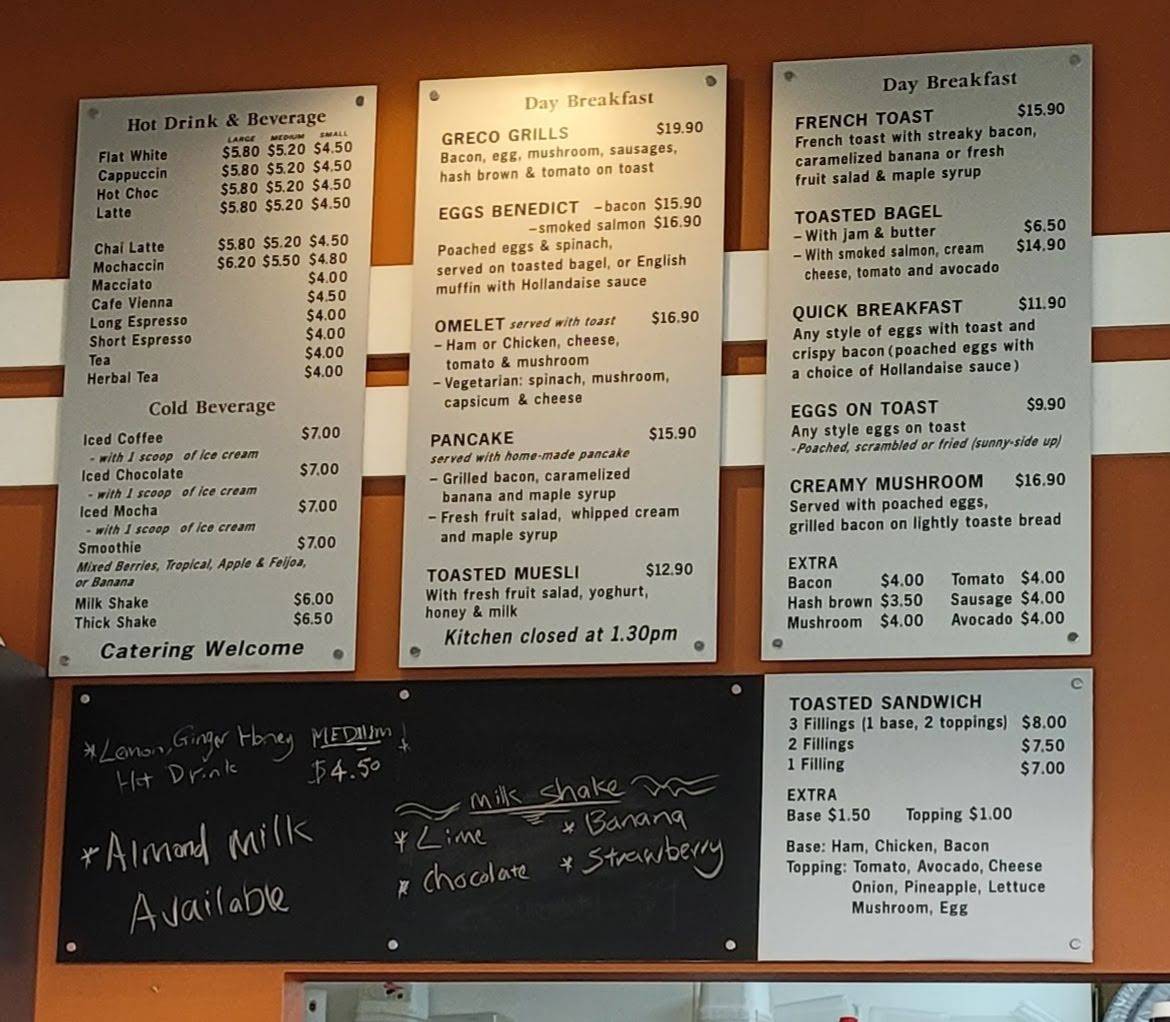 Hot Drink & Beverage
LARGE MEDIUM SMALL
Flat White $5.80 $5.20 $4.50
Cappuccin $5.80 $5.20 $4.50
Hot Choc $5.80 $5.20 $4.50
Latte $5.80 $5.20 $4.50
Chai Latte $5.80 $5.20 $4.50
Mochaccin $6.20 $5.50 $4.80
Macciato $4.00
Cafe Vienna $4.50
Long Espresso $4.00
Short Espresso $4.00
Tea $4.00
Herbal Tea $4.00
Cold Beverage
Iced Coffee $7.00
- with 1 scoop of ice cream
Iced Chocolate $7.00
- with 1 scoop of ice cream
Iced Mocha $7.00
- with 1 scoop of ice cream
Smoothie $7.00
Mixed Berries, Tropical, Apple & Feijoa,
or Banana
Milk Shake $6.00
Thick Shake $6.50
Catering Welcome
Day Breakfast
GRECO GRILLS $19.90
Bacon, egg, mushroom, sausages,
hash brown & tomato on toast
EGGS BENEDICT -bacon $15.90
-smoked salmon $16.90
Poached eggs & spinach,
served on toasted bagel, or English
muffin with Hollandaise sauce
OMELET served with toast $16.90
- Ham or Chicken, cheese,
tomato & mushroom
- Vegetarian: spinach, mushroom,
capsicum & cheese
PANCAKE $15.90
served with home-made pancake
- Grilled bacon, caramelized
banana and maple syrup
- Fresh fruit salad, whipped cream
and maple syrup
TOASTED MUESLI $12.90
With fresh fruit salad, yoghurt,
honey & milk
Kitchen closed at 1.30pm
Day Breakfast
FRENCH TOAST $15.90
French toast with streaky bacon,
caramelized banana or fresh
fruit salad & maple syrup
TOASTED BAGEL
- With jam & butter $6.50
- With smoked salmon, cream $14.90
cheese, tomato and avocado
QUICK BREAKFAST $11.90
Any style of eggs with toast and
crispy bacon (poached eggs with
a choice of Hollandaise sauce)
EGGS ON TOAST $9.90
Any style eggs on toast
-Poached, scrambled or fried (sunny-side up)
CREAMY MUSHROOM $16.90
Served with poached eggs,
grilled bacon on lightly toaste bread
EXTRA
Bacon $4.00 Tomato $4.00
Hash brown $3.50 Sausage $4.00
Mushroom $4.00 Avocado $4.00
*Lemon, Ginger Honey MEDIUM!
Hot Drink $4.50
*Almond Milk
Available
Milk Shake
* Lime * Banana
* Chocolate * Strawberry
TOASTED SANDWICH
3 Fillings (1 base, 2 toppings) $8.00
2 Fillings $7.50
1 Filling $7.00
EXTRA
Base $1.50 Topping $1.00
Base: Ham, Chicken, Bacon
Topping: Tomato, Avocado, Cheese
Onion, Pineapple, Lettuce
Mushroom, Egg